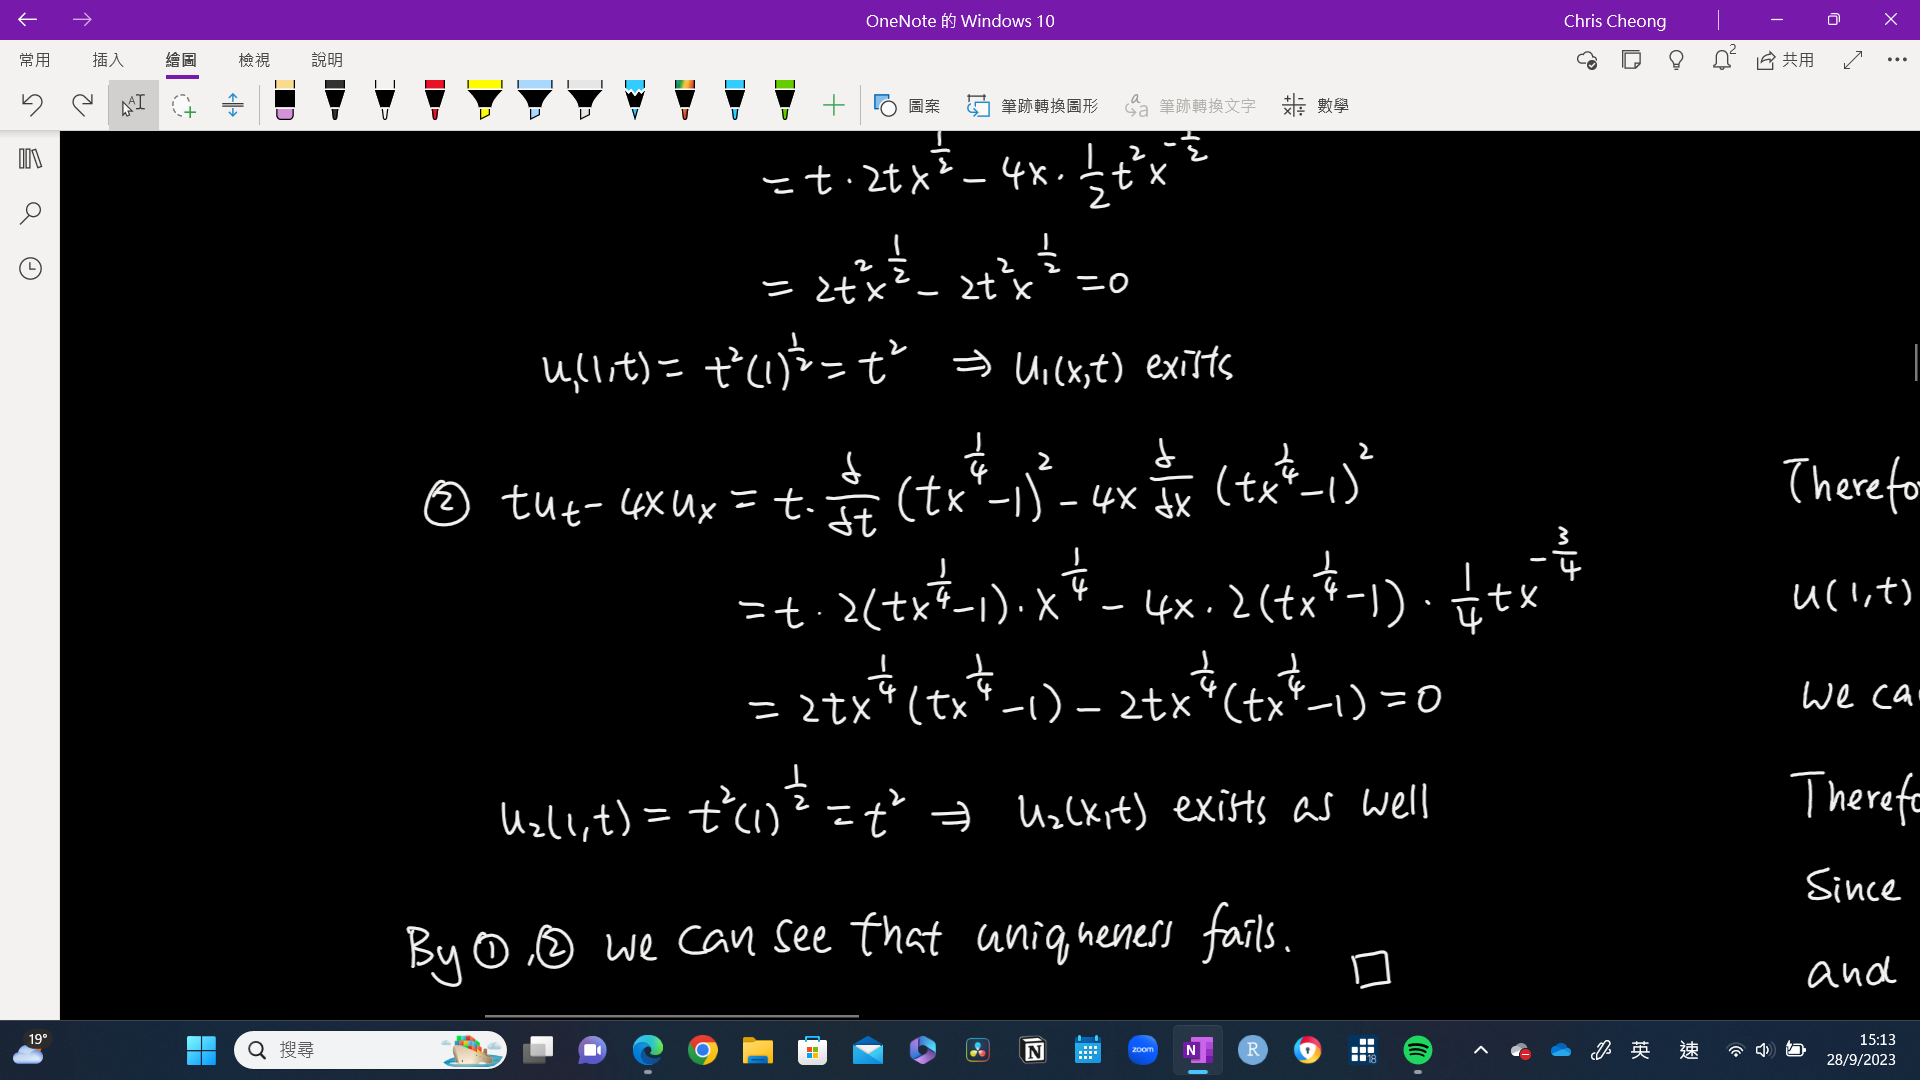 OneNote 的 Windows 10
Chris Cheong
常用 插入 繪圖 檢視 說明
2
共用
圖案
筆跡轉換圖形
筆跡轉換文字
數學
= t · 2tx^{1/2} - 4x · \frac{1}{2} t^2 x^{-1/2}
= 2t^2x^{1/2} - 2t^2x^{1/2} = 0
u_1(1,t) = t^2(1)^{1/2} = t^2 ⇒ u_1(x,t) exists
② tu_t - 4xu_x = t · \frac{∂}{∂t} (tx^{1/4} - 1)^2 - 4x \frac{∂}{∂x} (tx^{1/4} - 1)^2
= t · 2(tx^{1/4} - 1) · x^{1/4} - 4x · 2(tx^{1/4} - 1) · \frac{1}{4} tx^{-3/4}
= 2tx^{1/4}(tx^{1/4} - 1) - 2tx^{1/4}(tx^{1/4} - 1) = 0
u_2(1,t) = t^2(1)^{1/2} = t^2 ⇒ u_2(x,t) exists as well
By ①,② we can see that uniqueness fails. □
Therefo
u(1,t)
We ca
Therefo
Since
and
19°
搜尋
zoom
N
R
18
英
速
15:13
28/9/2023